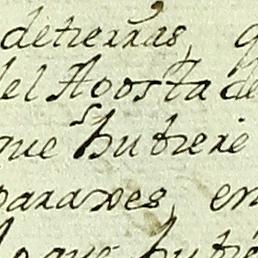 detierras, q
del Aoosta de
que hubiere
parares, en
lo que hubie